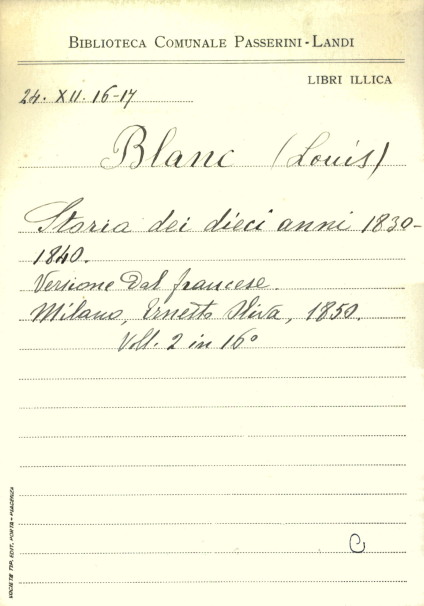 BIBLIOTECA COMUNALE PASSERINI-LANDI
LIBRI ILLICA
24. XII. 16-17
Blanc (Louis)
Storia dei dieci anni 1830-
1840.
Versione dal francese.
Milano, Ernesto Oliva, 1850.
Voll. 2 in 16º
C
SOCIETÀ TIP. EDIT. PORTA - PIACENZA